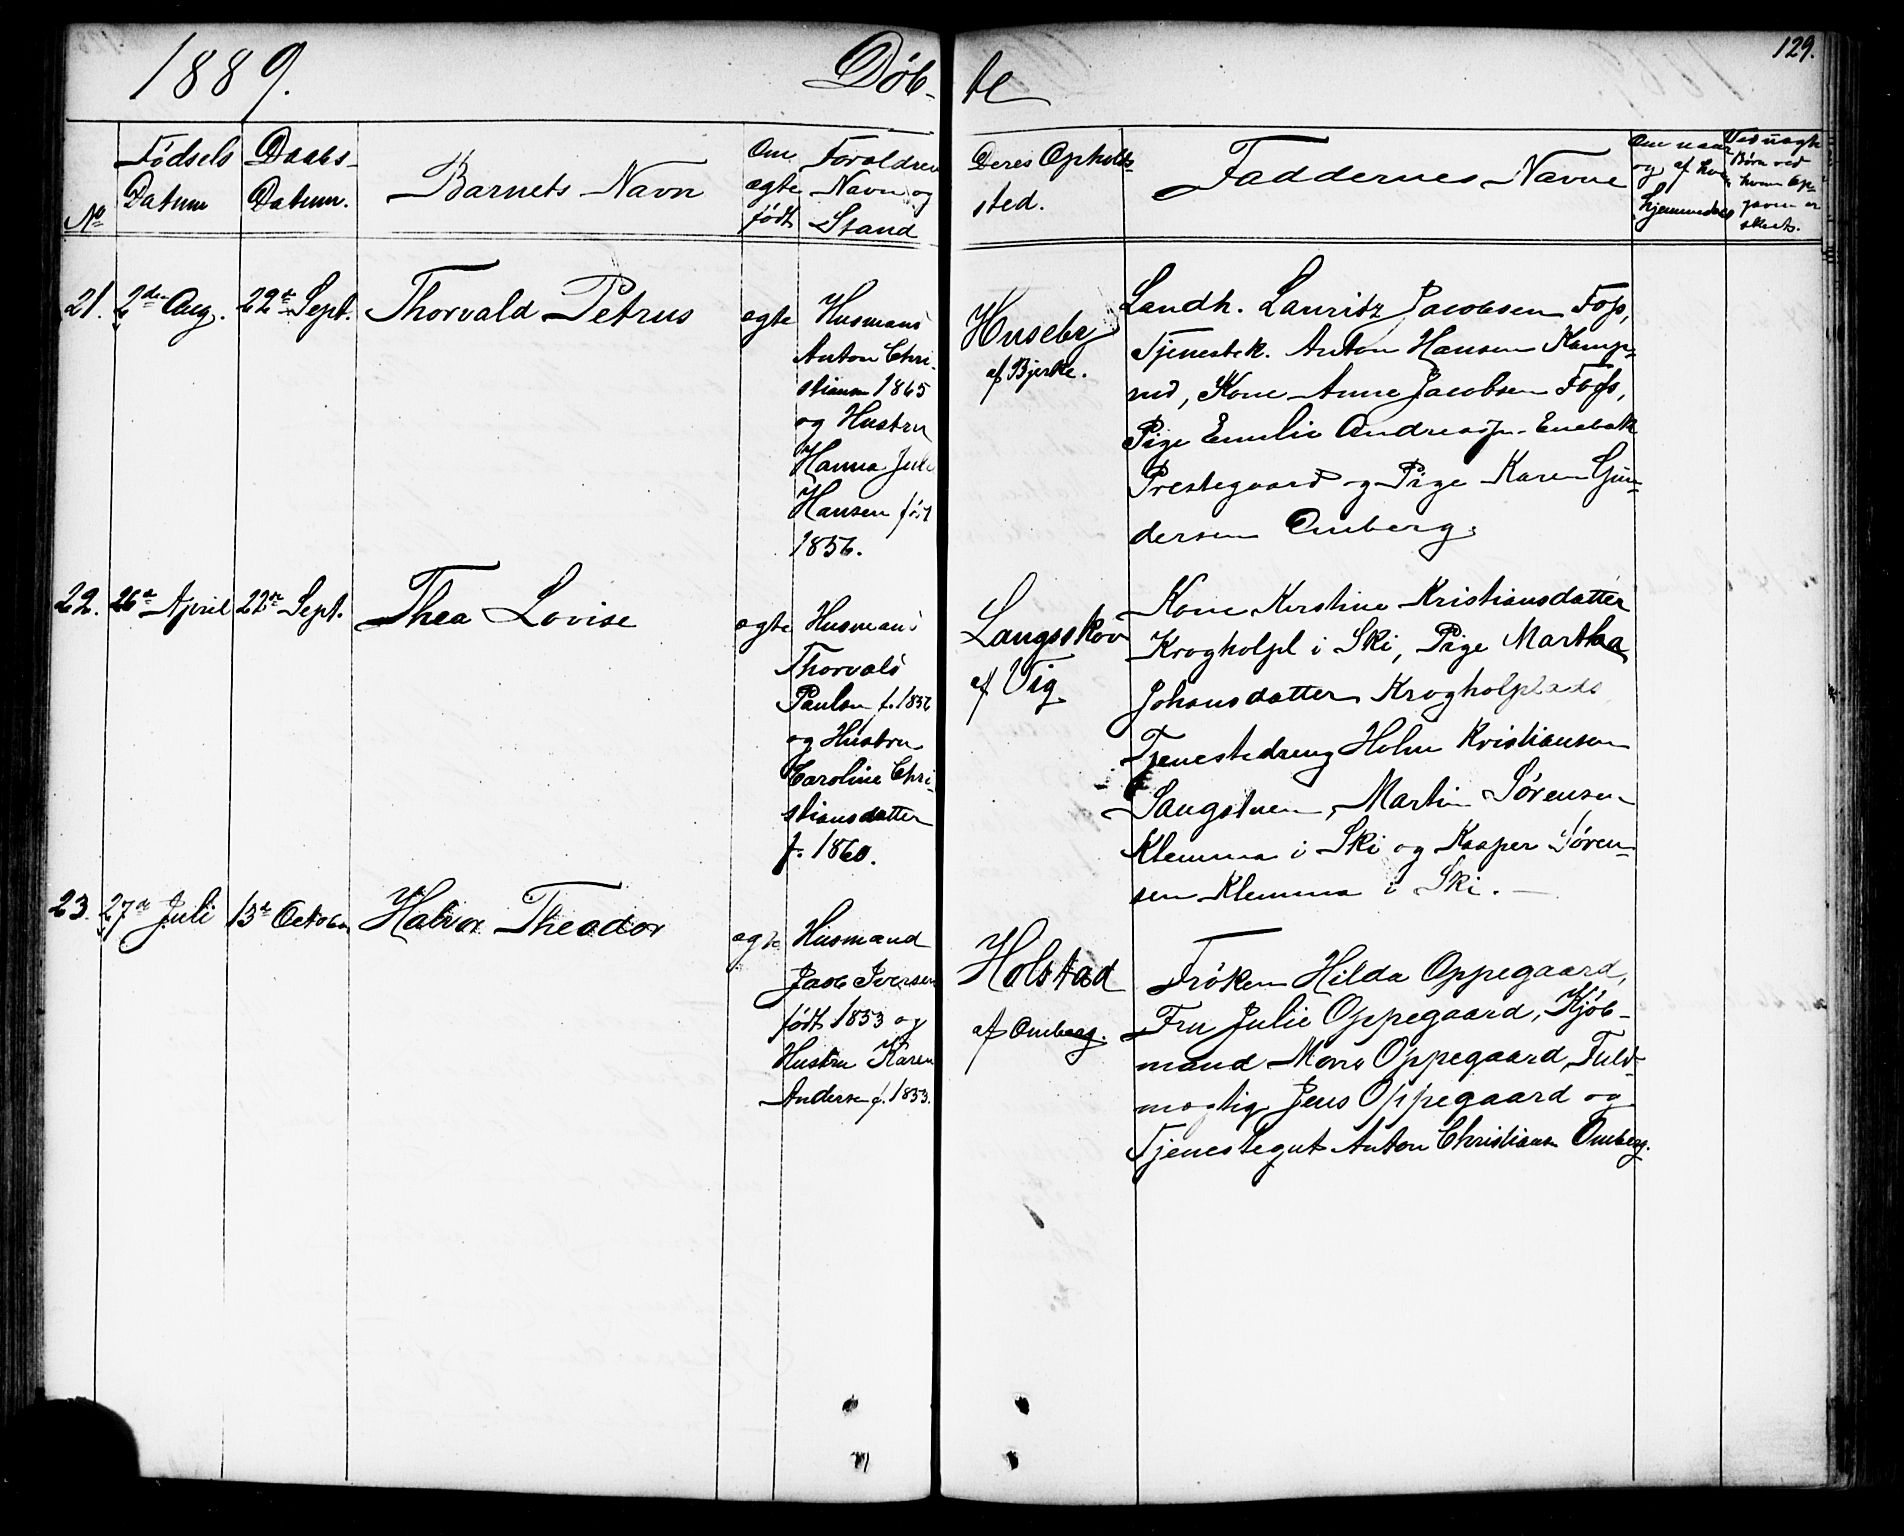 1889.
Døb-
te
129.
No
Fødsels
Datum
Daabs-
Datum.
Barnets Navn
Om
ægte
født
Forældren
Navn og
Stand
Deres Opholds-
sted.
Faddernes Navne
Om naar
og af hvem
hjemmedøbt
Ved uægte
Børn ved
hvem Op-
gaven er
skeet.
21.
2den Aug.
22de Sept.
Thorvald Petrus
ægte
Husmand
Anton Chri-
stiansen 1865
og Hustru
Hanna Juli
Hansen født
1856.
Huseby
af Bjerke.
Landh. Lauritz Jacobsen Foss,
Tjenestek. Anton Hansen Kamp-
rud, Kone Anne Jacobsen Foss,
Pige Emilie Andreasen Enebak
Prestegaard og Pige Karen Gun-
dersen Omberg.
22.
26de April
22de Sept.
Thea Lovise
ægte
Husmand
Thorvald
Paulsen f. 1856
og Hustru
Caroline Chri-
stiansdatter
f. 1860.
Langsskov
af Vig
Kone Kirstine Kristiansdatter
Krogholpl i Ski, Pige Martha
Johansdatter Krogholplads
Tjenestedreng Holm Kristiansen
Saugstuen, Martin Sørensen
Klemma i Ski og Kasper Søren-
sen Klemma i Ski.
23.
27de Juli
13de October
Halvor Theodor
ægte
Husmand
Jacob Iversen
født 1853 og
Hustru Karen
Andersen f. 1853.
Holstad
af Omberg.
Frøken Hilda Oppegaard,
Fru Julie Oppegaard, Kjøb-
mand Mons Oppegaard, Fuld-
mægtig Jens Oppegaard og
Tjenestegut Anton Christiansen Omberg.